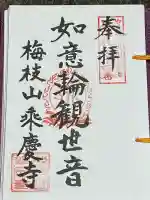 奉拝
如意輪観世音
梅枝山乘慶寺